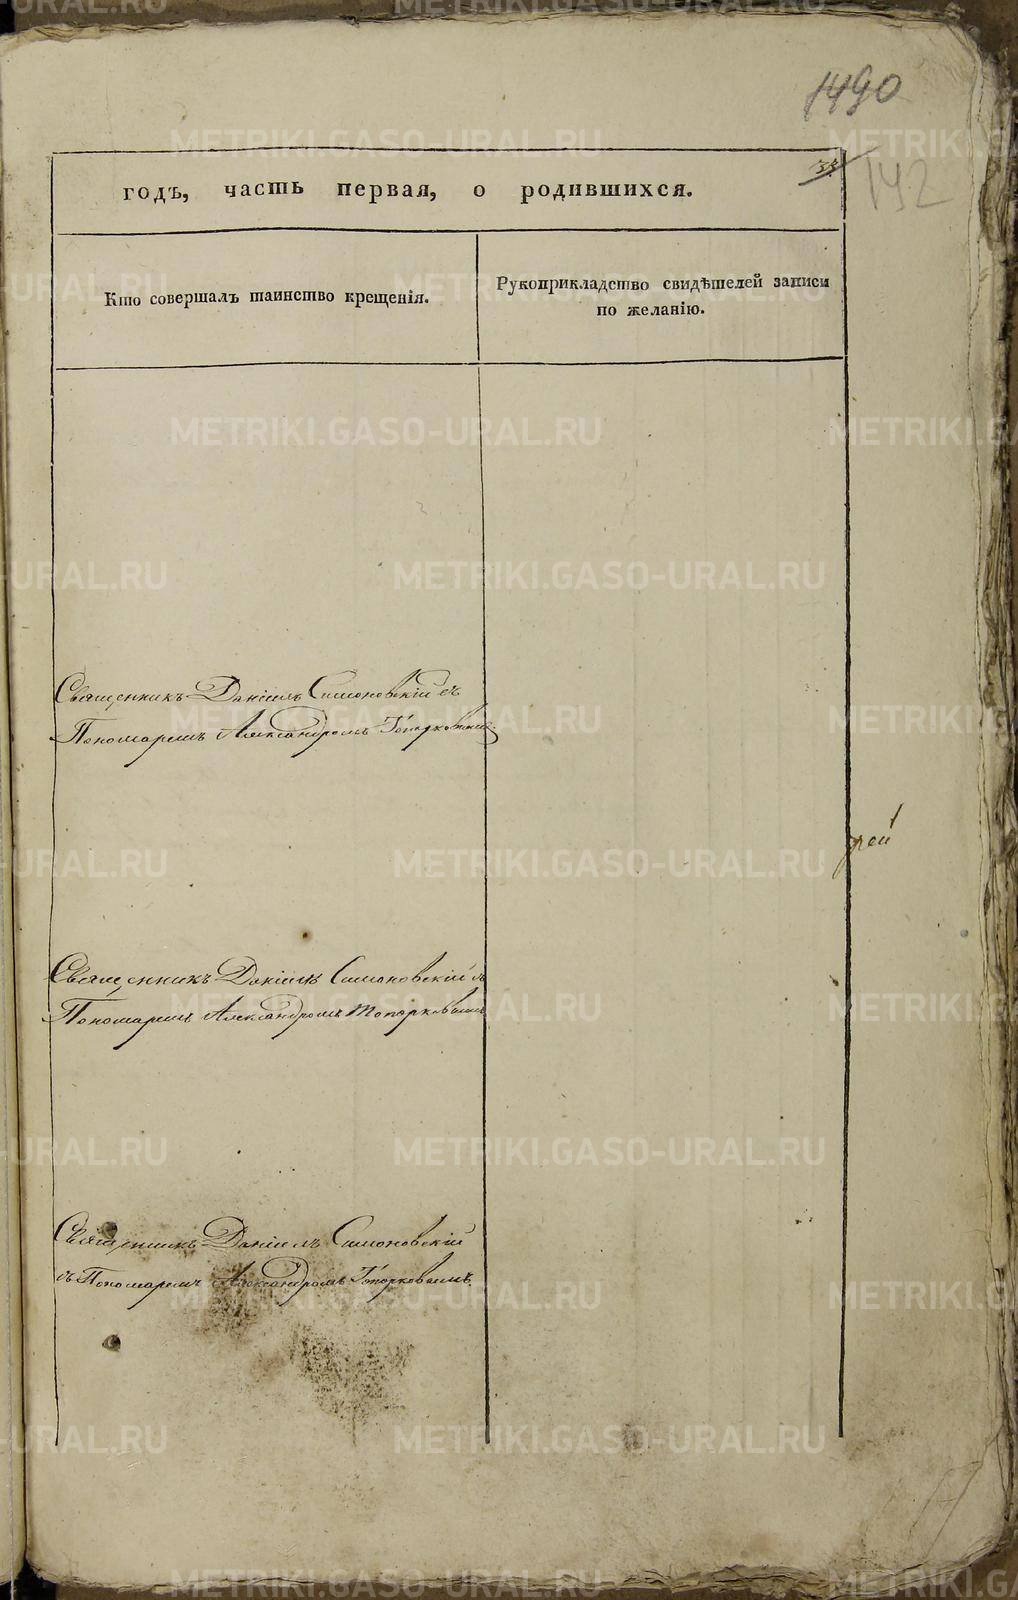 1490
33
142
годъ, часть первая, о родившихся.
Кто совершалъ таинство крещенія.
Рукоприкладство свидѣтелей записи
по желанію.
Священникъ Даніилъ Симоновскій съ
Пономаремъ Александромъ Топорковымъ.
рей
Священникъ Даніилъ Симоновскій съ
Пономаремъ Александромъ Топорковымъ
Священникъ Даніилъ Симоновскій
съ Пономаремъ Александромъ Топорковымъ.
METRIKI.GASO-URAL.RU